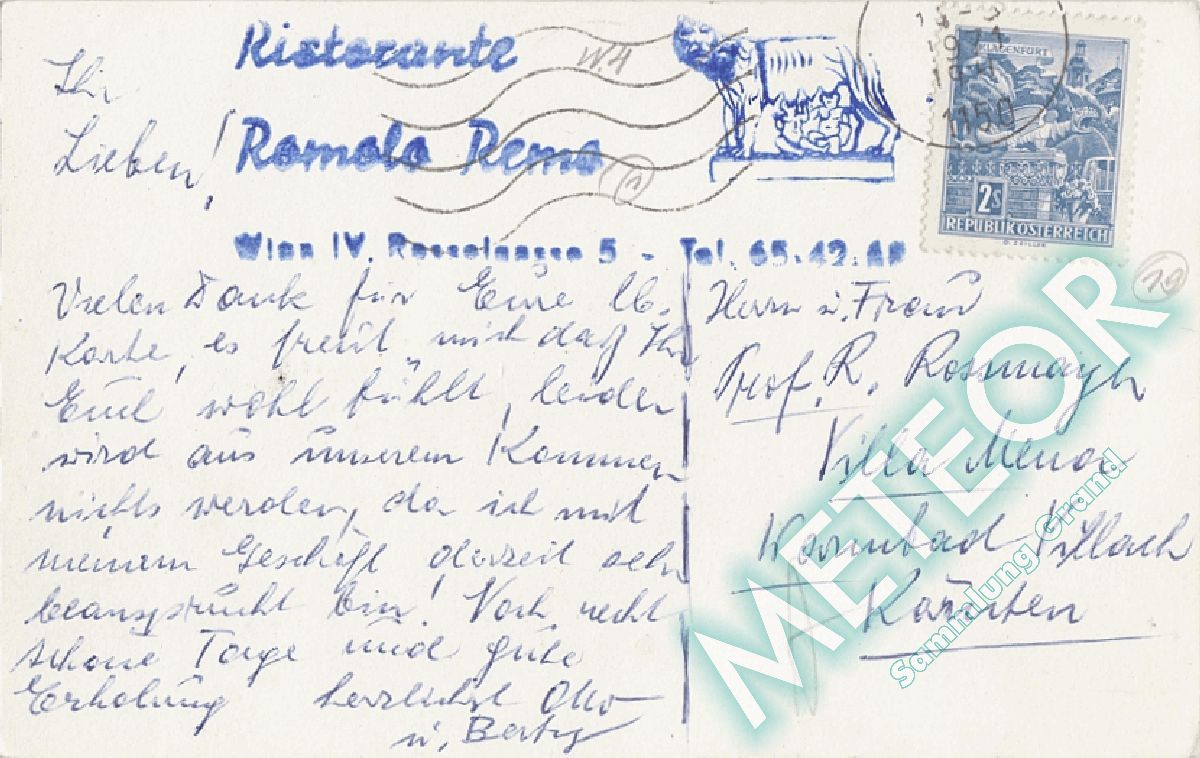 Ristorante
Romolo Remo
Wien IV. Resselgasse 5 - Tel. 65-42-
W.4
Ihr
Lieben!
Vielen Dank für Eure lb.
Karte, es freut mich daß Ihr
Euch wohl fühlt, leider
wird aus unserem Kommen
nichts werden, da ich mit
meinem Geschäft derzeit sehr
beansprucht bin! Noch recht
schöne Tage und gute
Erholung herzlichst Otto
u. Berty
1971
1150
KLAGENFURT
2S
REPUBLIK ÖSTERREICH
10
Herrn u. Frau
Prof. R. Rossmayr
Villa
Warmbad Villach
Kärnten
METEOR
Sammlung Grand